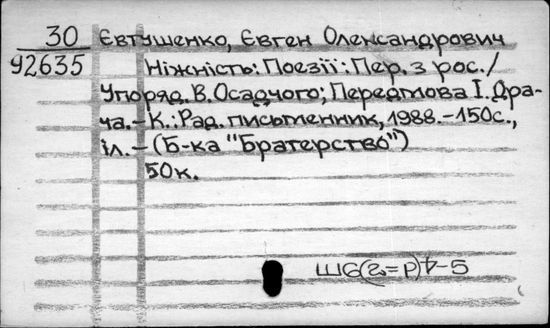 30 Євтушенко, Євген Олександрович
У2635 Ніжність: Поезії: Пер. з рос./
Упоряд. В. Осадчого; Передмова І. Дра-
ча.-К.: Рад. письменник, 1988.-150с.,
іл.-(Б-ка "Братерство")
50к.